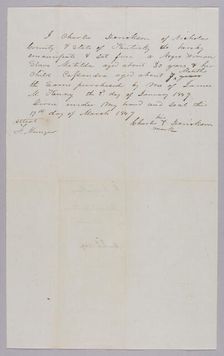 I Charles Davidson of Nicholas
County & State of Kentucky do hereby
emancipate & set free a Negro Woman
Slave Matilda aged about 30 years & her
Child Cassandra aged about 7 months
the same purchased by me of James
M. the 2d day of January 1847
Given under my hand and seal this
11th day of March 1847
Attest
his
Charles Davidson
mark